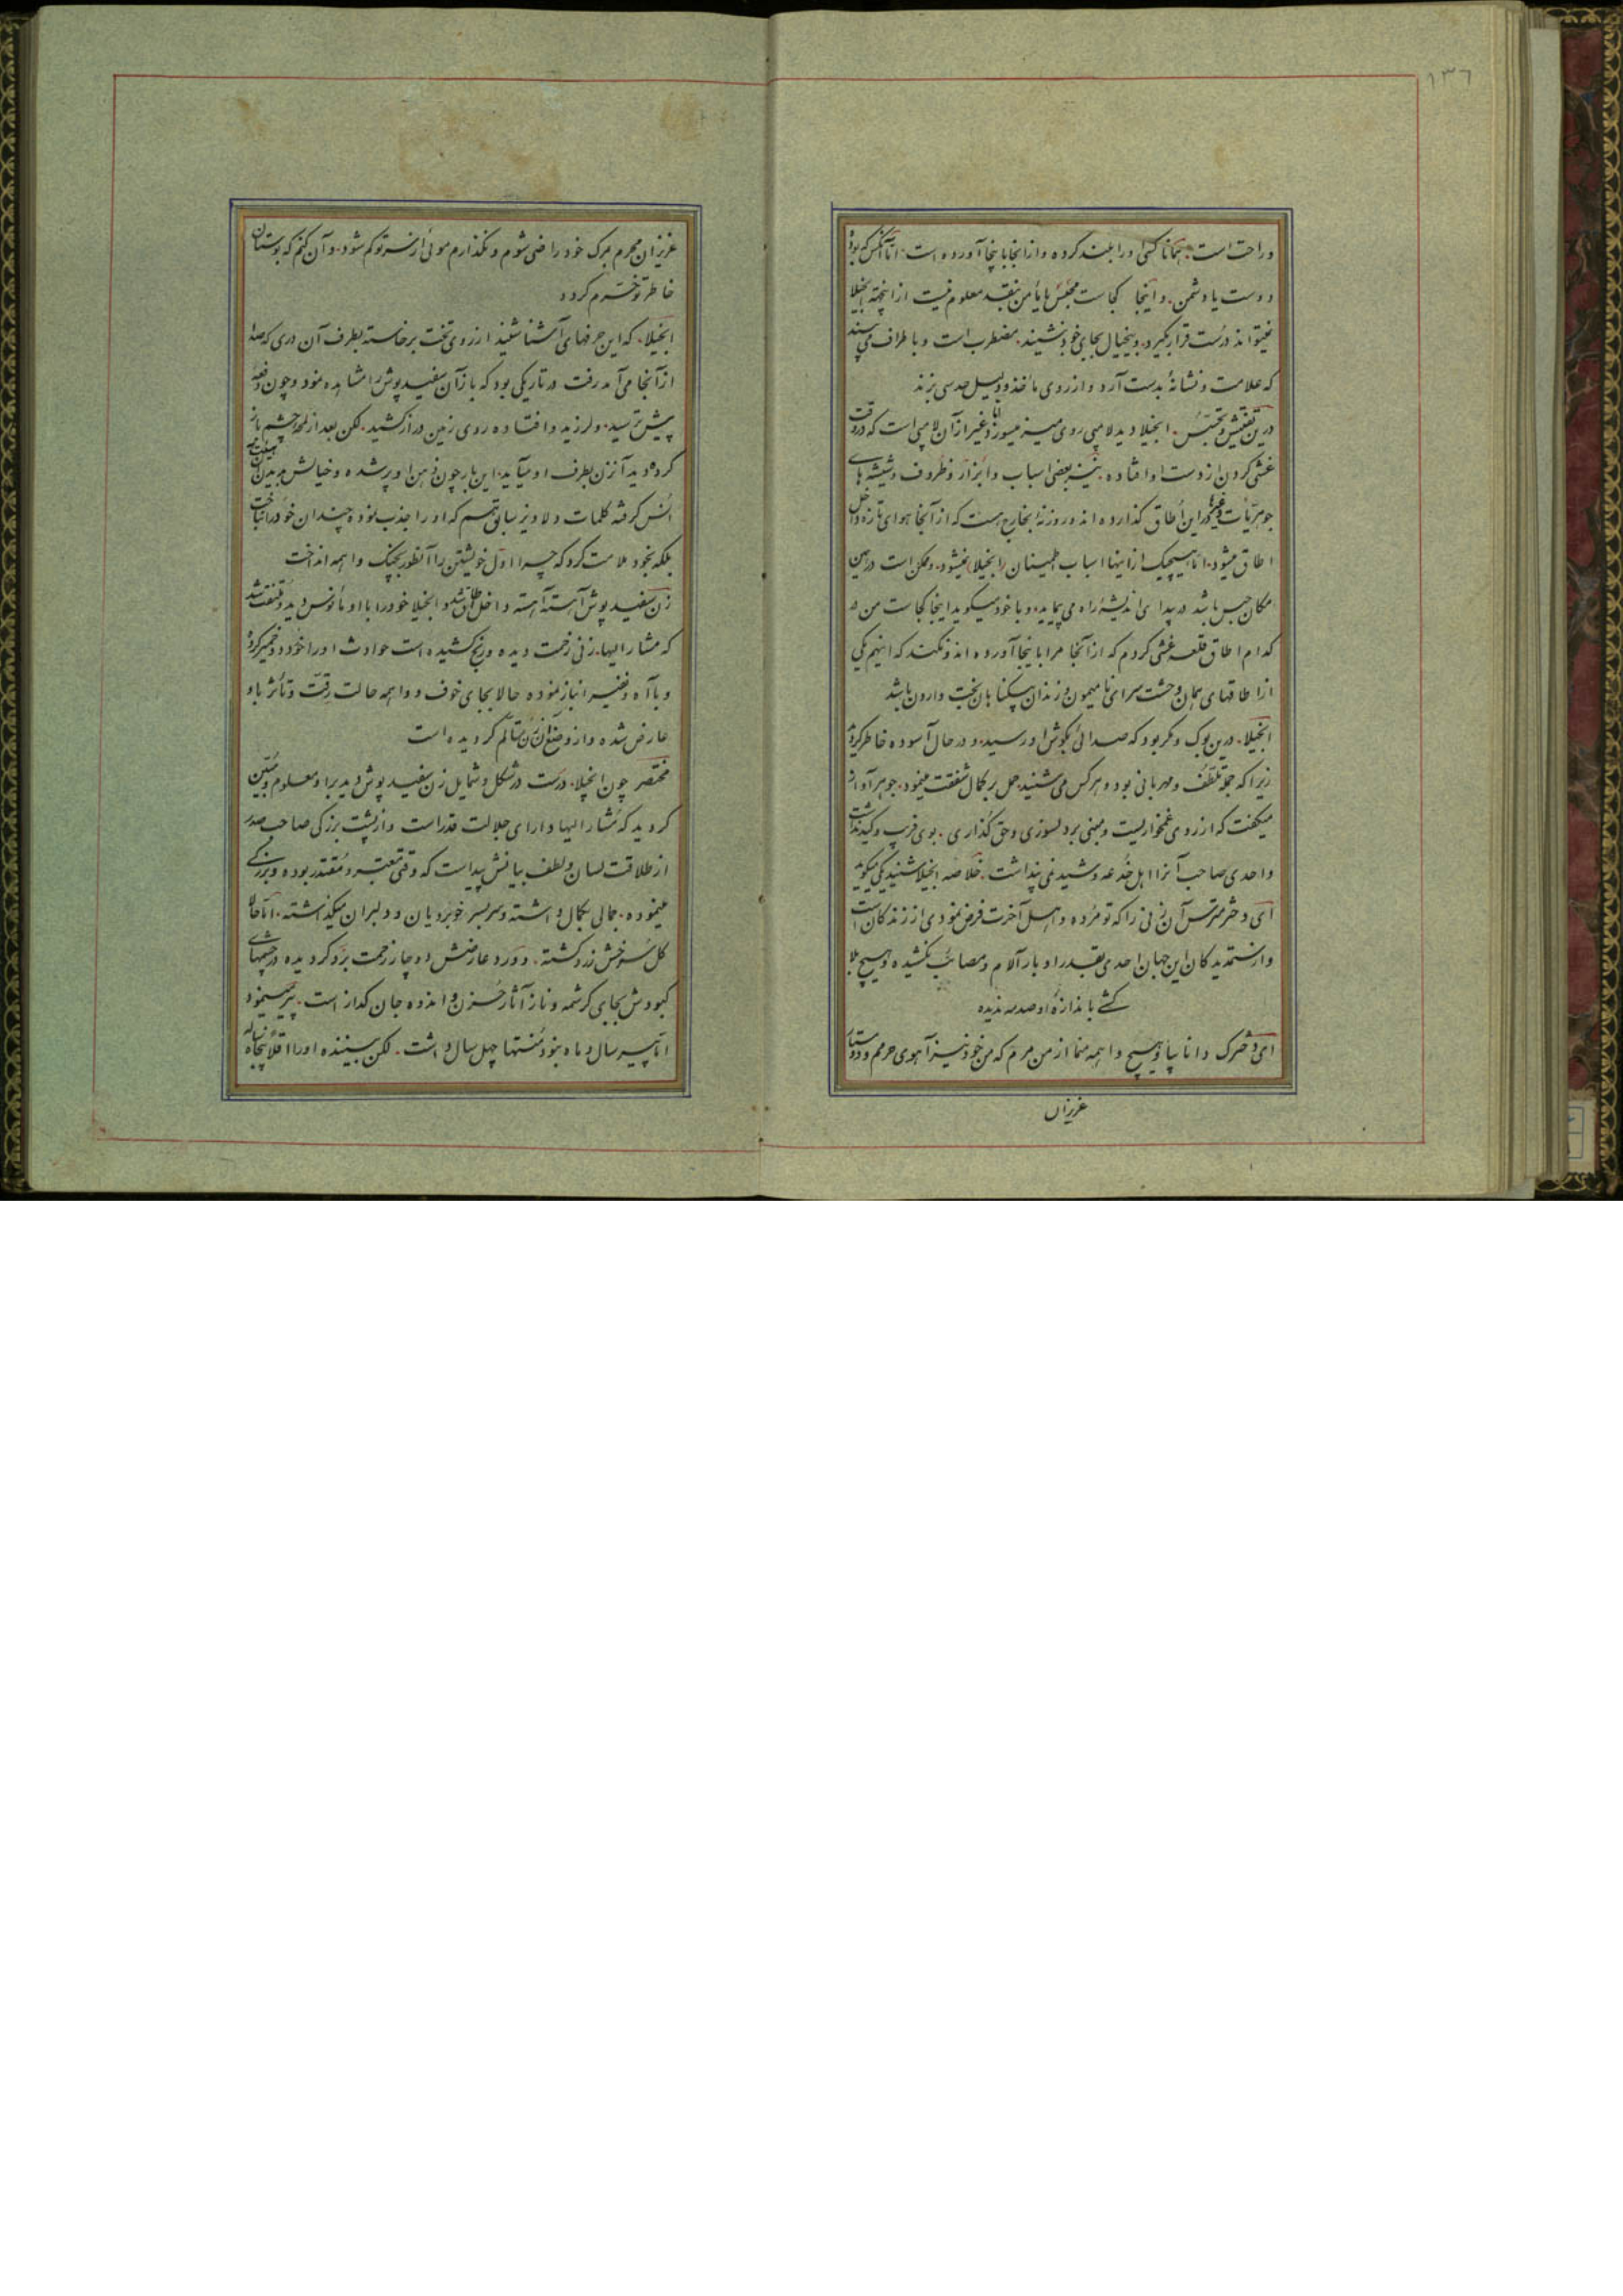 ١٣٦
و راحت است. همانا کسی او را بلند کرده و از آنجا باینجا آورده است. اما آنکس که بود
دوست یا دشمن. و اینجا کجاست محبس یا مأمن بنقد معلوم نیست از اینجهة انجیلا
نمیتواند درست قرار بگیرد. و بیخیال بجای خود نشیند. مضطرب است و باطراف می بیند
که علامت و نشانهٔ بدست آرد و از روی مأخذ و دلیل حدسی بزند
درین تفتیش و تجسّس. انجیلا دید لامپی روی میز میسوزد امّا غیر از آن لامپی است که در وقت
غشی کردن از دست او افتاده. نیز بعضی اسباب و ابزار و ظروف و شیشه های
جوهریّات و غیره درین اُطاق گذارده اند و روزنهٔ بخارج هست که از آنجا هوای تازه داخل
اطاق میشود. اما هیچیک از اینها اسباب اطمینان انجیلا نمیشود. و ممکن است در همین
مکان حبس باشد در بیدای اندیشه راه می پیماید. و با خود میگوید اینجا کجاست من در
کدام اطاق قلعه غشی کردم که از آنجا مرا باینجا آورده اند و نکند که اینهم یکی
از اطاقهای همان وحشت سرای نامیمون و زندان بیگناهان بخت وارون باشد
انجیلا. درین بوک و مگر بود که صدائی بگوش او رسید. و در حال آسوده خاطر کرد
زیرا که جمله تلطّف و مهربانی بود و هر کس می شنید. حمل بر کمال شفقت مینمود. جوهر آواز
میگفت که از روی غمخواریست و مبنی بر دلسوزی و حق گذاری. بوی فریب و کید نداشت
واحدی صاحب آنرا اهل خدعه و شید نمی پنداشت. خلاصه انجیلا شنید یکی میگوید
ای دختر مترس آن زنی را که تو مرده و اهل آخرت فرض نمودی از زندگان است
و از ستمدیدگان این جهان احدی بقدر او بار آلام و مصائب نکشیده و هیچ بلا
کشی باندازهٔ او صدمه ندیده
ای دخترک دانا بیا و هیچ واهمه منما از من مرم که من خود نیز آهوی حرمم و دوستان
عزیزان
عزیزان محرم بمرگ خود راضی شوم و نگذارم موئی از سر تو کم شود. و آن کنم که بوستان
خاطر تو خرّم گردد
انجیلا. که این حرفهای آشنا شنید از روی تخت برخاسته بطرف آن دری که صدا
از آنجا می آمد رفت در تاریکی بود که باز آن سفید پوش را مشاهده نمود و چون دفعهٔ
پیش ترسید. و لرزید و افتاده روی زمین دراز کشید. لکن بعد از لمحه چشم باز
کرده دید آنزن بطرف او میآید. این بار چون ذهن او پر شده و خیالش بدین
اُنس گرفته کلمات دلاویز سابق هم که او را جذب نموده چندان خود را نباخت
بلکه بخود ملامت کرد که چرا اول خویشتن را آنطور بچنگ واهمه انداخت
زن سفید پوش آهسته آهسته داخل اطاق شد و انجیلا خود را با او مأنوس دید و ملتفت شد
که مشارالیها. زنی زحمت دیده و رنج کشیده است حوادث او را خورد و خمیر کرده
و با آه و نفیر انباز نموده حالا بجای خوف و واهمه حالت رقّت و تأثر باو
عارض شده و از وضع آن زن متألم گردیده است
مختصر چون انجیلا. درست در شکل و شمایل زن سفید پوش دید بر او معلوم و مبیّن
گردید که مشارالیها دارای جلالت قدر است و از پشت بزرگی صاحب صدر
از طلاقت لسان و لطف بیانش پیداست که وقتی معتبر و مقتدر بوده و بزرگی
مینموده. جمالی بکمال داشته و سر بسر خوبرویان و دلبران میگذاشته. اما حالا
گل سرخش زرد گشته. و ورد عارضش دوچار زحمت برد گردیده در چشمهای
کبودش بجای کرشمه و ناز آثار حزن و اندوه جان گداز است. پیر مینمود
اما پیر سال و ماه نبود منتها چهل سال داشت. لکن بیننده او را اقلاً پنجاه ساله